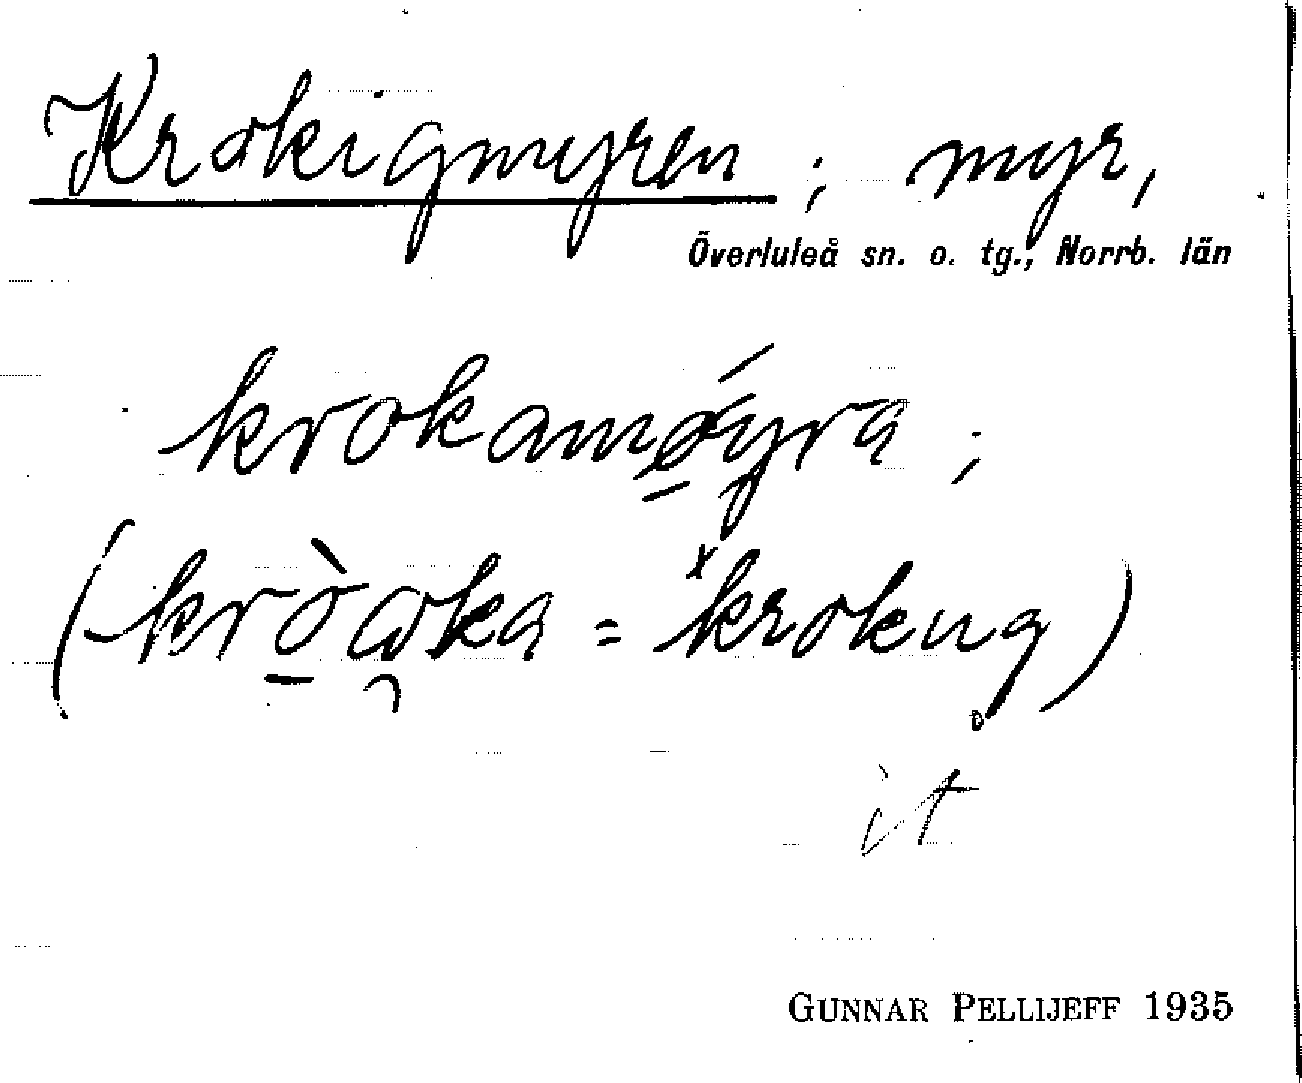 Krokigmyren ; myr,
Överluleå sn. o. tg., Norrb. län
krokamøyra ;
(kròωka = ˣkrokug)
it
GUNNAR PELLIJEFF 1935